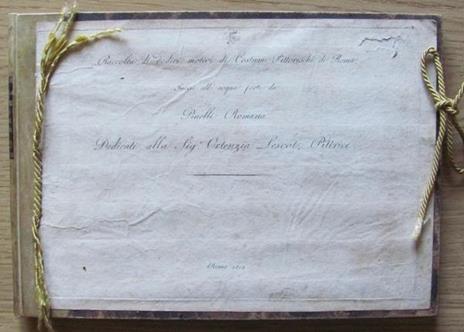 Raccolta di dodici motivi di Costumi Pittoreschi di Roma
Incisi all' acqua forte da
Pinelli Romano
Dedicati alla Sig.ª Ortenzia Lescot, Pittrice
Roma